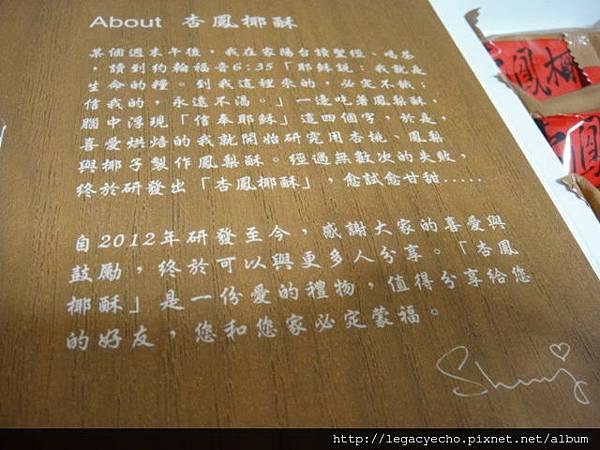 About 杏鳳椰酥
某個週末午後，我在家陽台讀聖經、喝茶
，讀到約翰福音6:35「耶穌說：我就是
生命的糧。到我這裡來的，必定不餓；
信我的，永遠不渴。」一邊吃著鳳梨酥，
腦中浮現「信奉耶穌」這四個字，於是，
喜愛烘焙的我就開始研究用杏桃、鳳梨
與椰子製作鳳梨酥。經過無數次的失敗，
終於研發出「杏鳳椰酥」，愈試愈甘甜.....
自2012年研發至今，感謝大家的喜愛與
鼓勵，終於可以與更多人分享。「杏鳳
椰酥」是一份愛的禮物，值得分享給您
的好友，您和您家必定蒙福。
http://legacyecho.pixnet.net/album